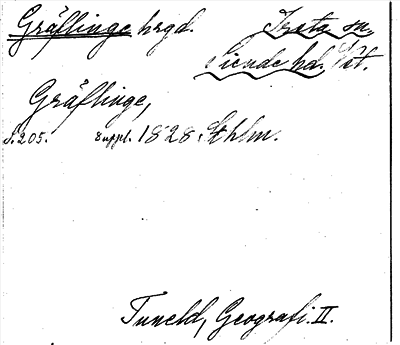 Gräflinge hrgd. Irsta sn,
Siende hd. Vstm.
Gräflinge,
S. 205. Suppl. 1828 Sthlm.
Tuneld, Geografi. II.